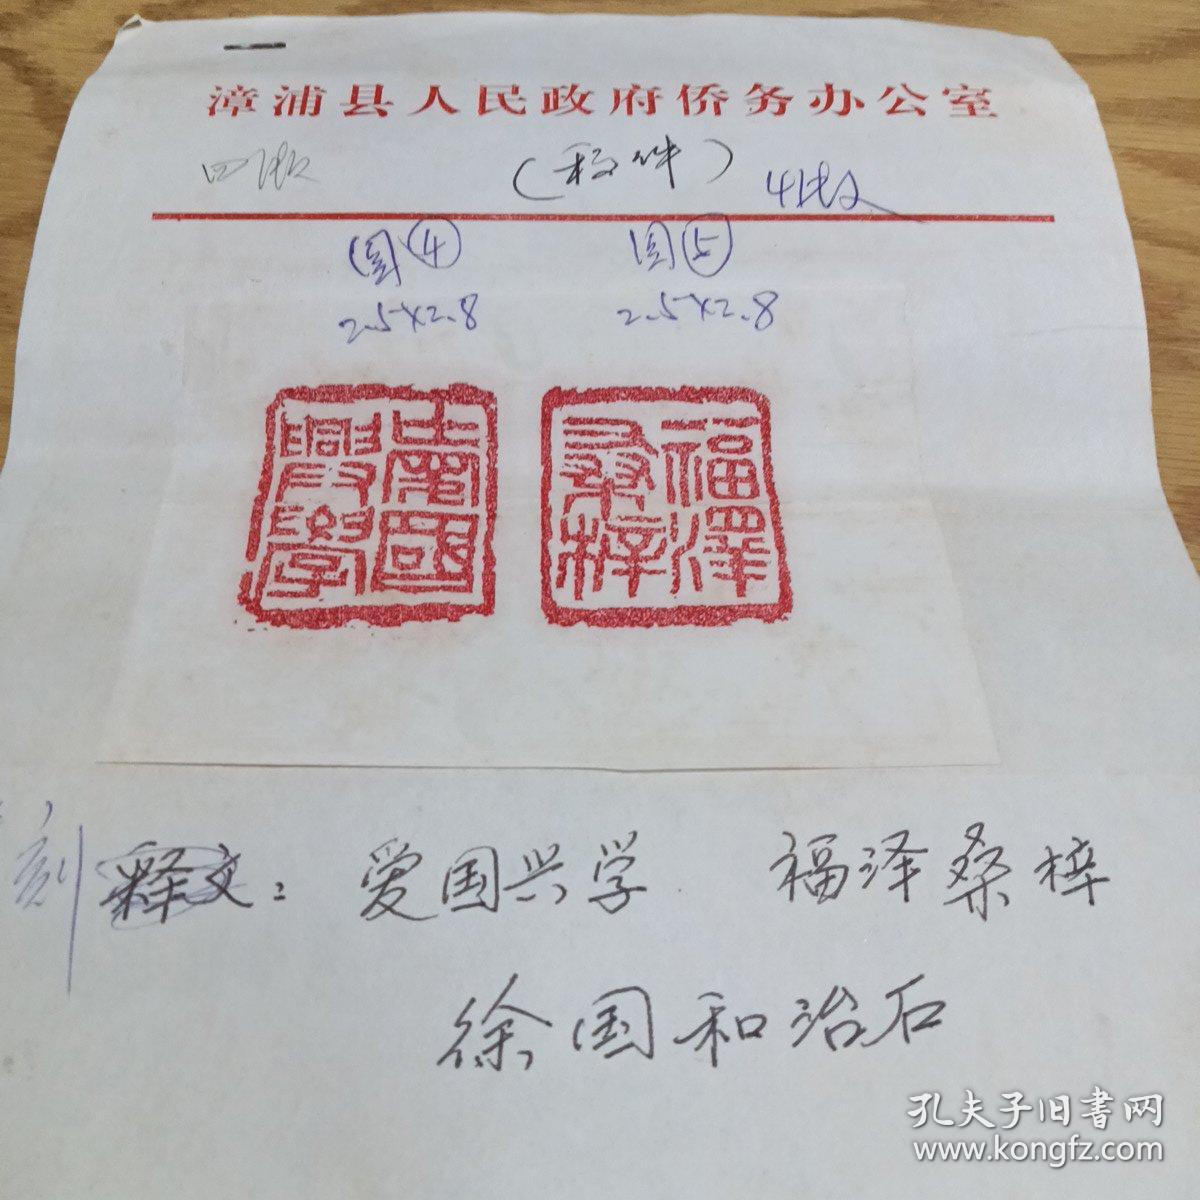 漳浦县人民政府侨务办公室
四版 (移件) 4版
图④ 图⑤
2.5×2.8 2.5×2.8
愛國興學 福澤桑梓
刻 释文: 爱国兴学 福泽桑梓
徐国和治石
孔夫子旧書网
www.kongfz.com